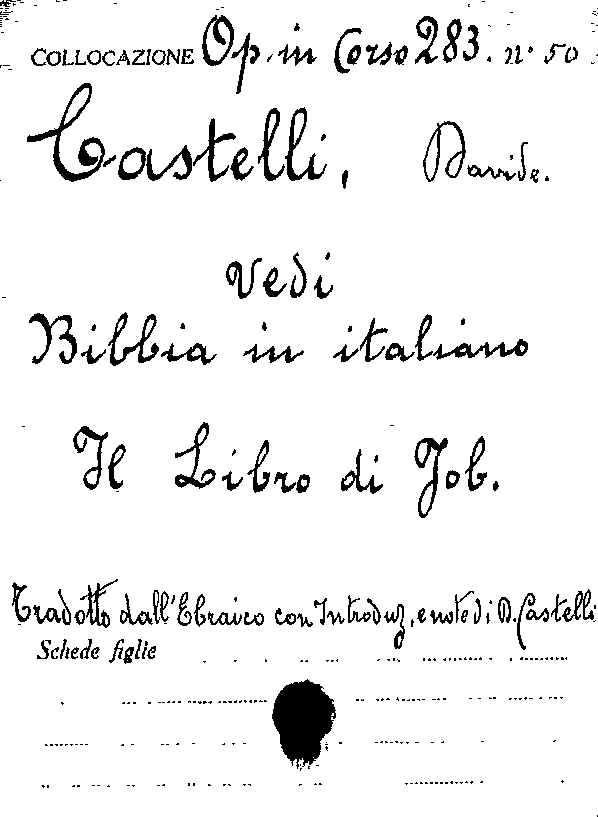 COLLOCAZIONE Op. in Corso 283. n° 50
Castelli, Davide.
Vedi
Bibbia in italiano
Il Libro di Job.
Tradotto dall'Ebraico con Introduz, e note di D. Castelli
Schede figlie